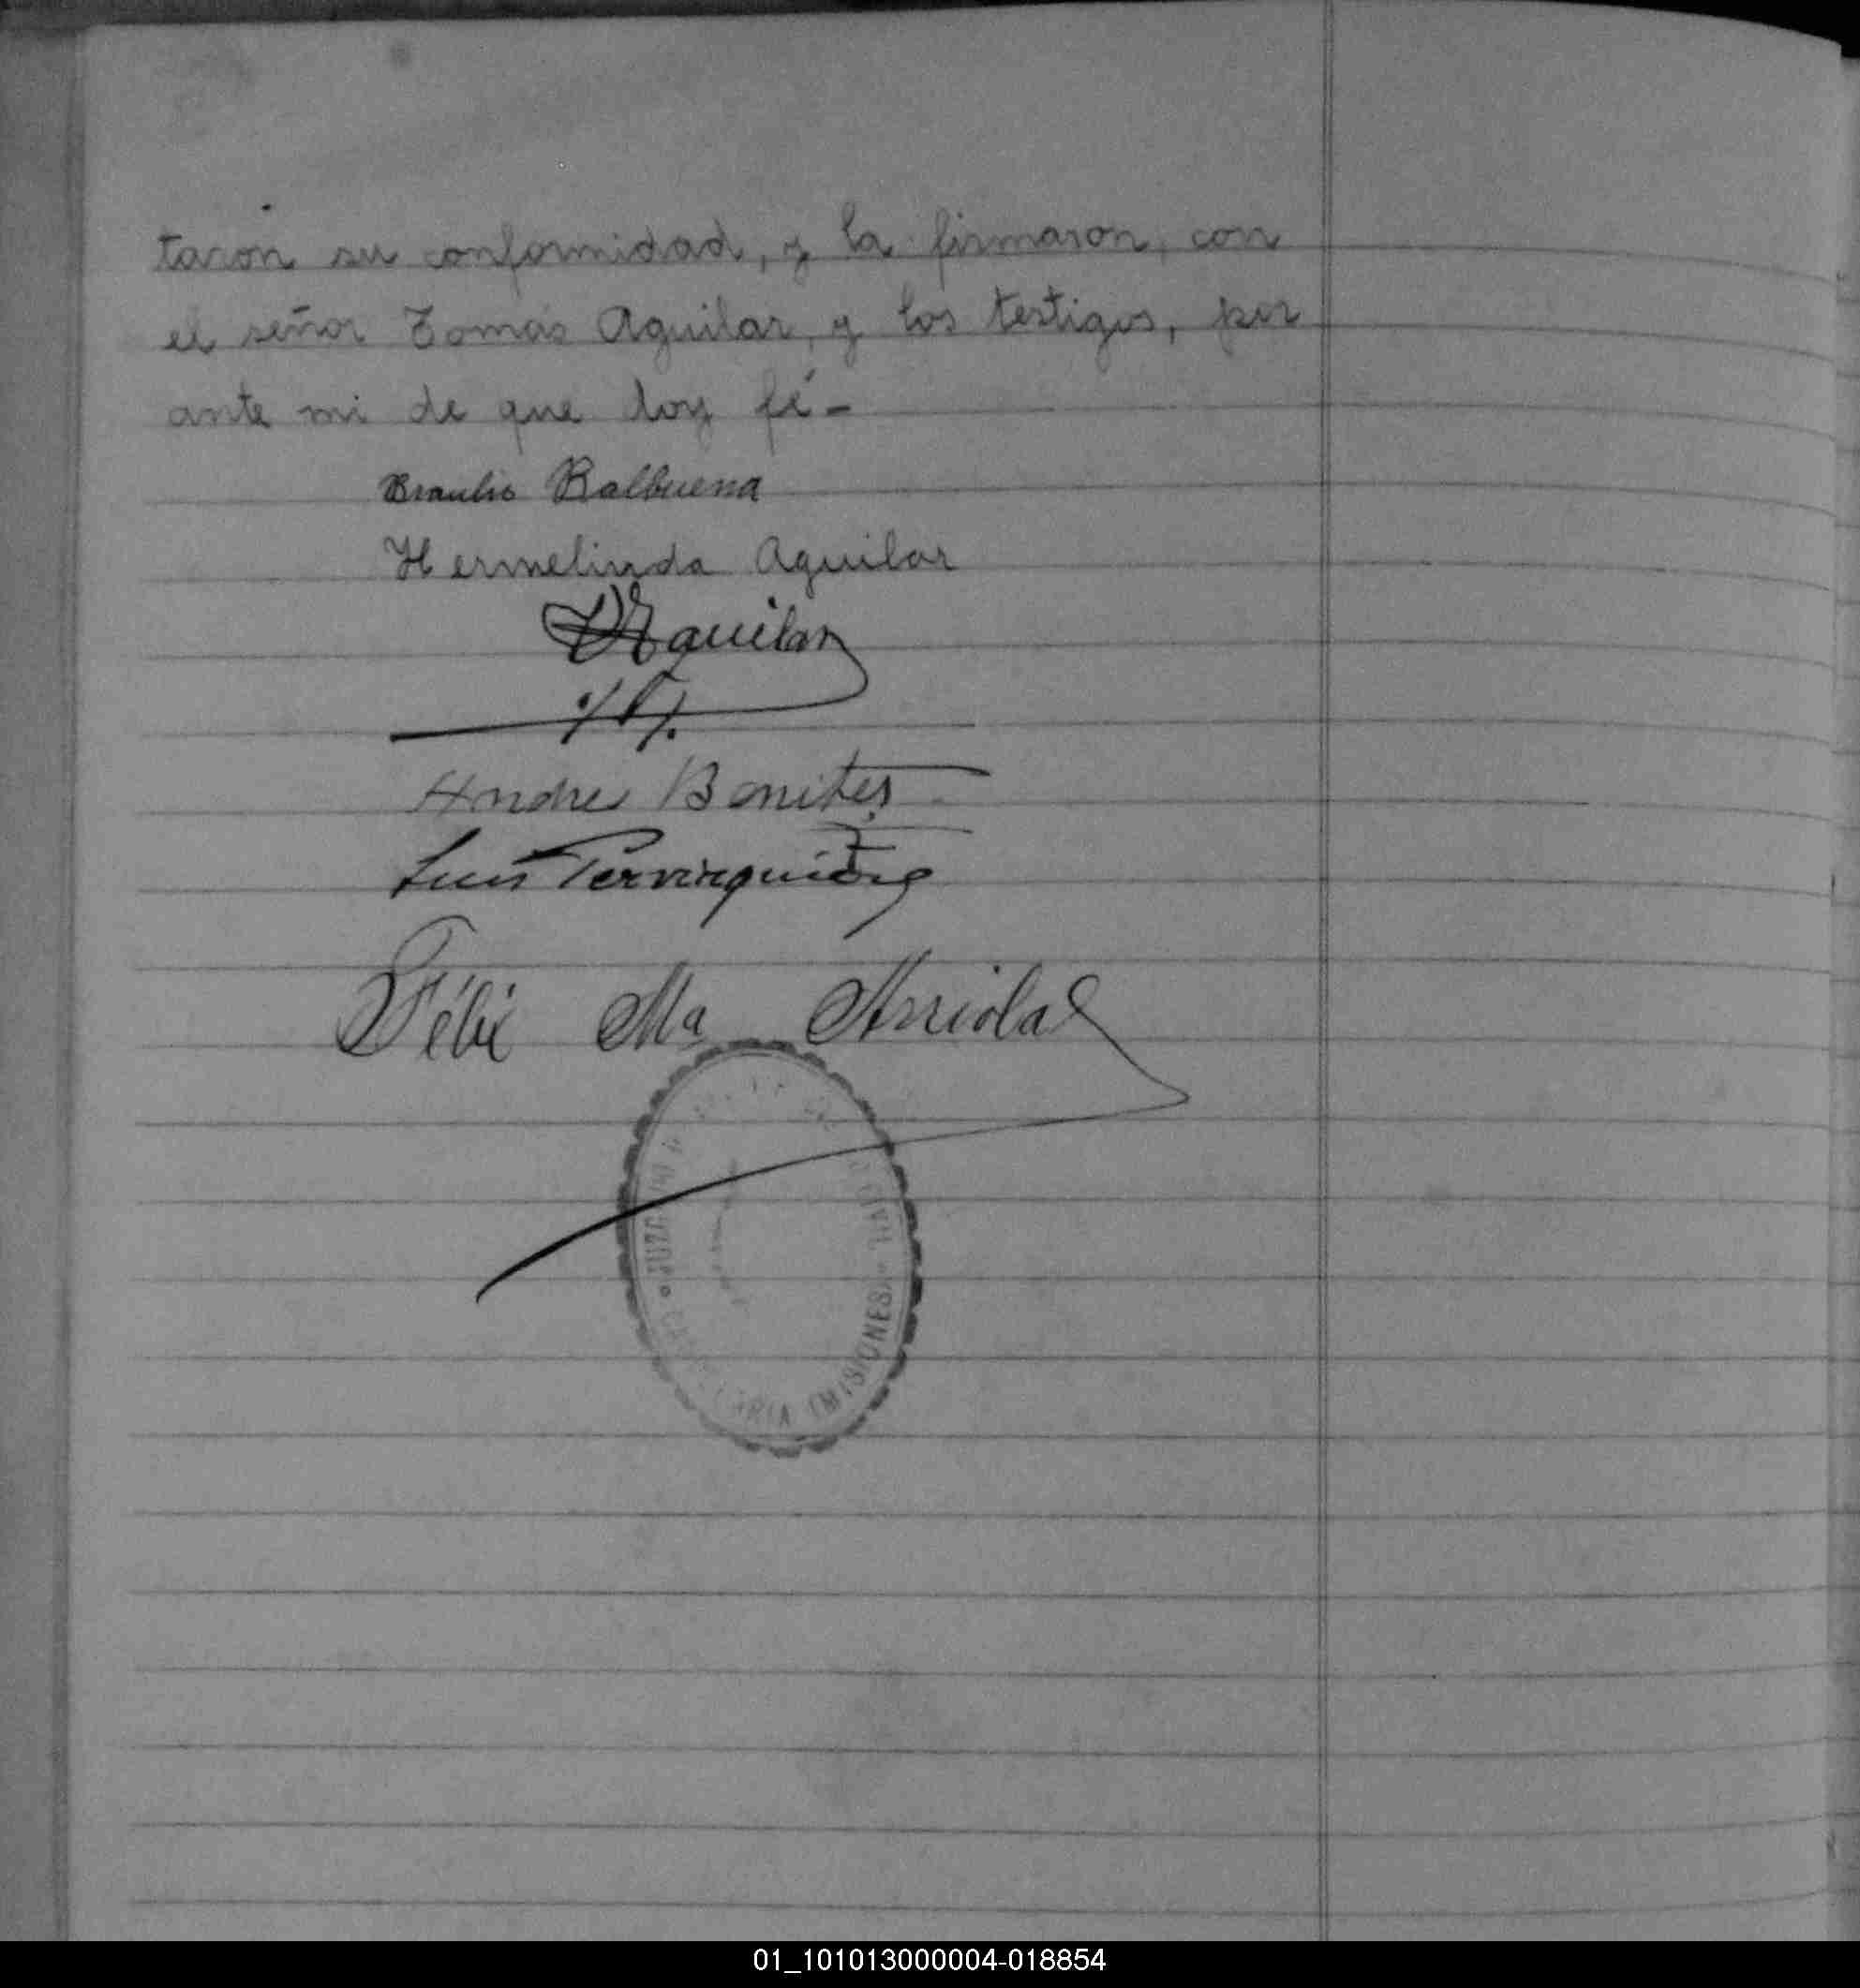 taron su conformidad, y la firmaron, con
el señor Tomás Aguilar, y los testigos, por
ante mi de que doy fé-
Braulio Balbuena
Hermelinda Aguilar
Aguilar
Andres Benites
Luis
Félix Ma Arriola
JUZGADO CANDELARIA (MISIONES)
01_101013000004-018854